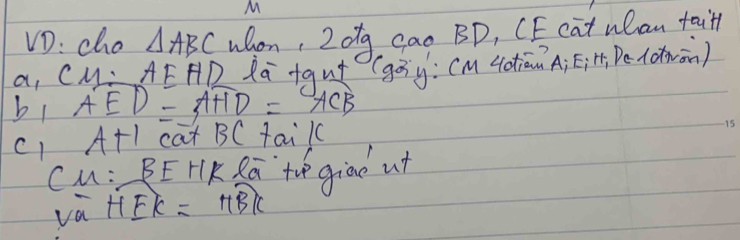 M
VD: cho ΔABC nhọn, 2 đtg cao BD, CE cắt nhau tại H
a, CM: AEHD là tgnt (gợi ý: CM 4 điểm A; E; H; D ∈ 1 đtròn)
b, AED = AHD = ACB
c, AH cắt BC tại K
CM: BEHK là tứ giác nt
và HEK = HBK
15